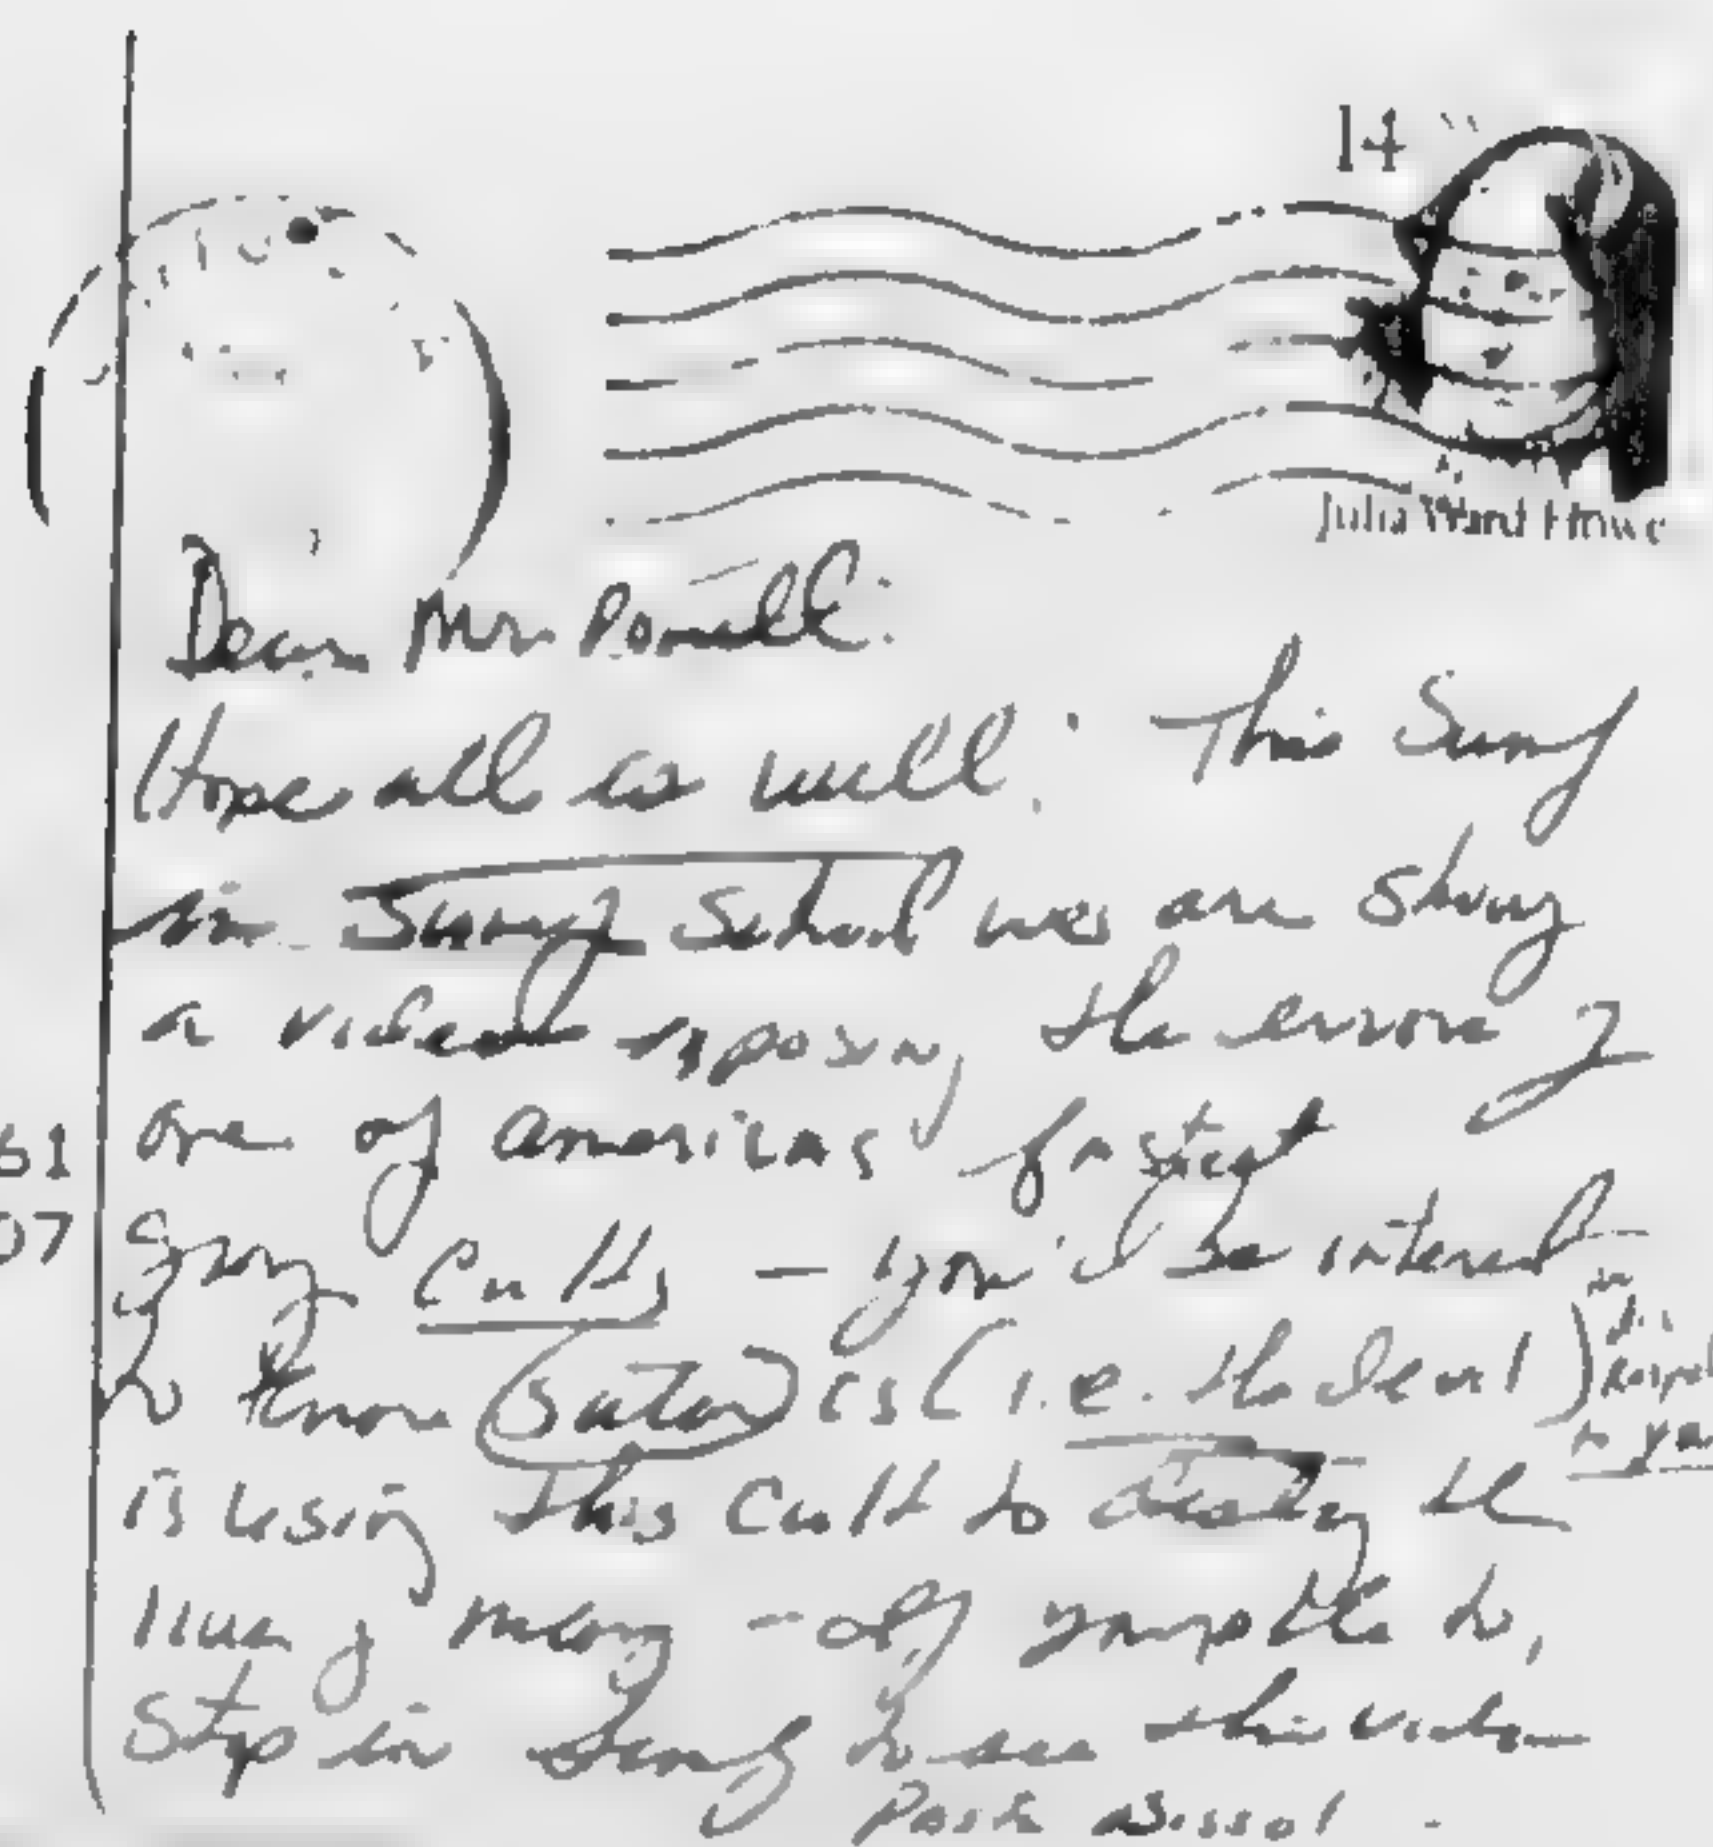 14
Julia Ward Howe
Dear Mr. Powell:
Hope all is well. This Suny
in Suny School we are showg
a video exposing the errors of
61 one of americas fastest
07 growg Cults – you'd be interested
to know (Satan) is (i.e. the devil)
is using this Cult to destroy the
lives of many – if possible to,
Stop in Sunday to see this video